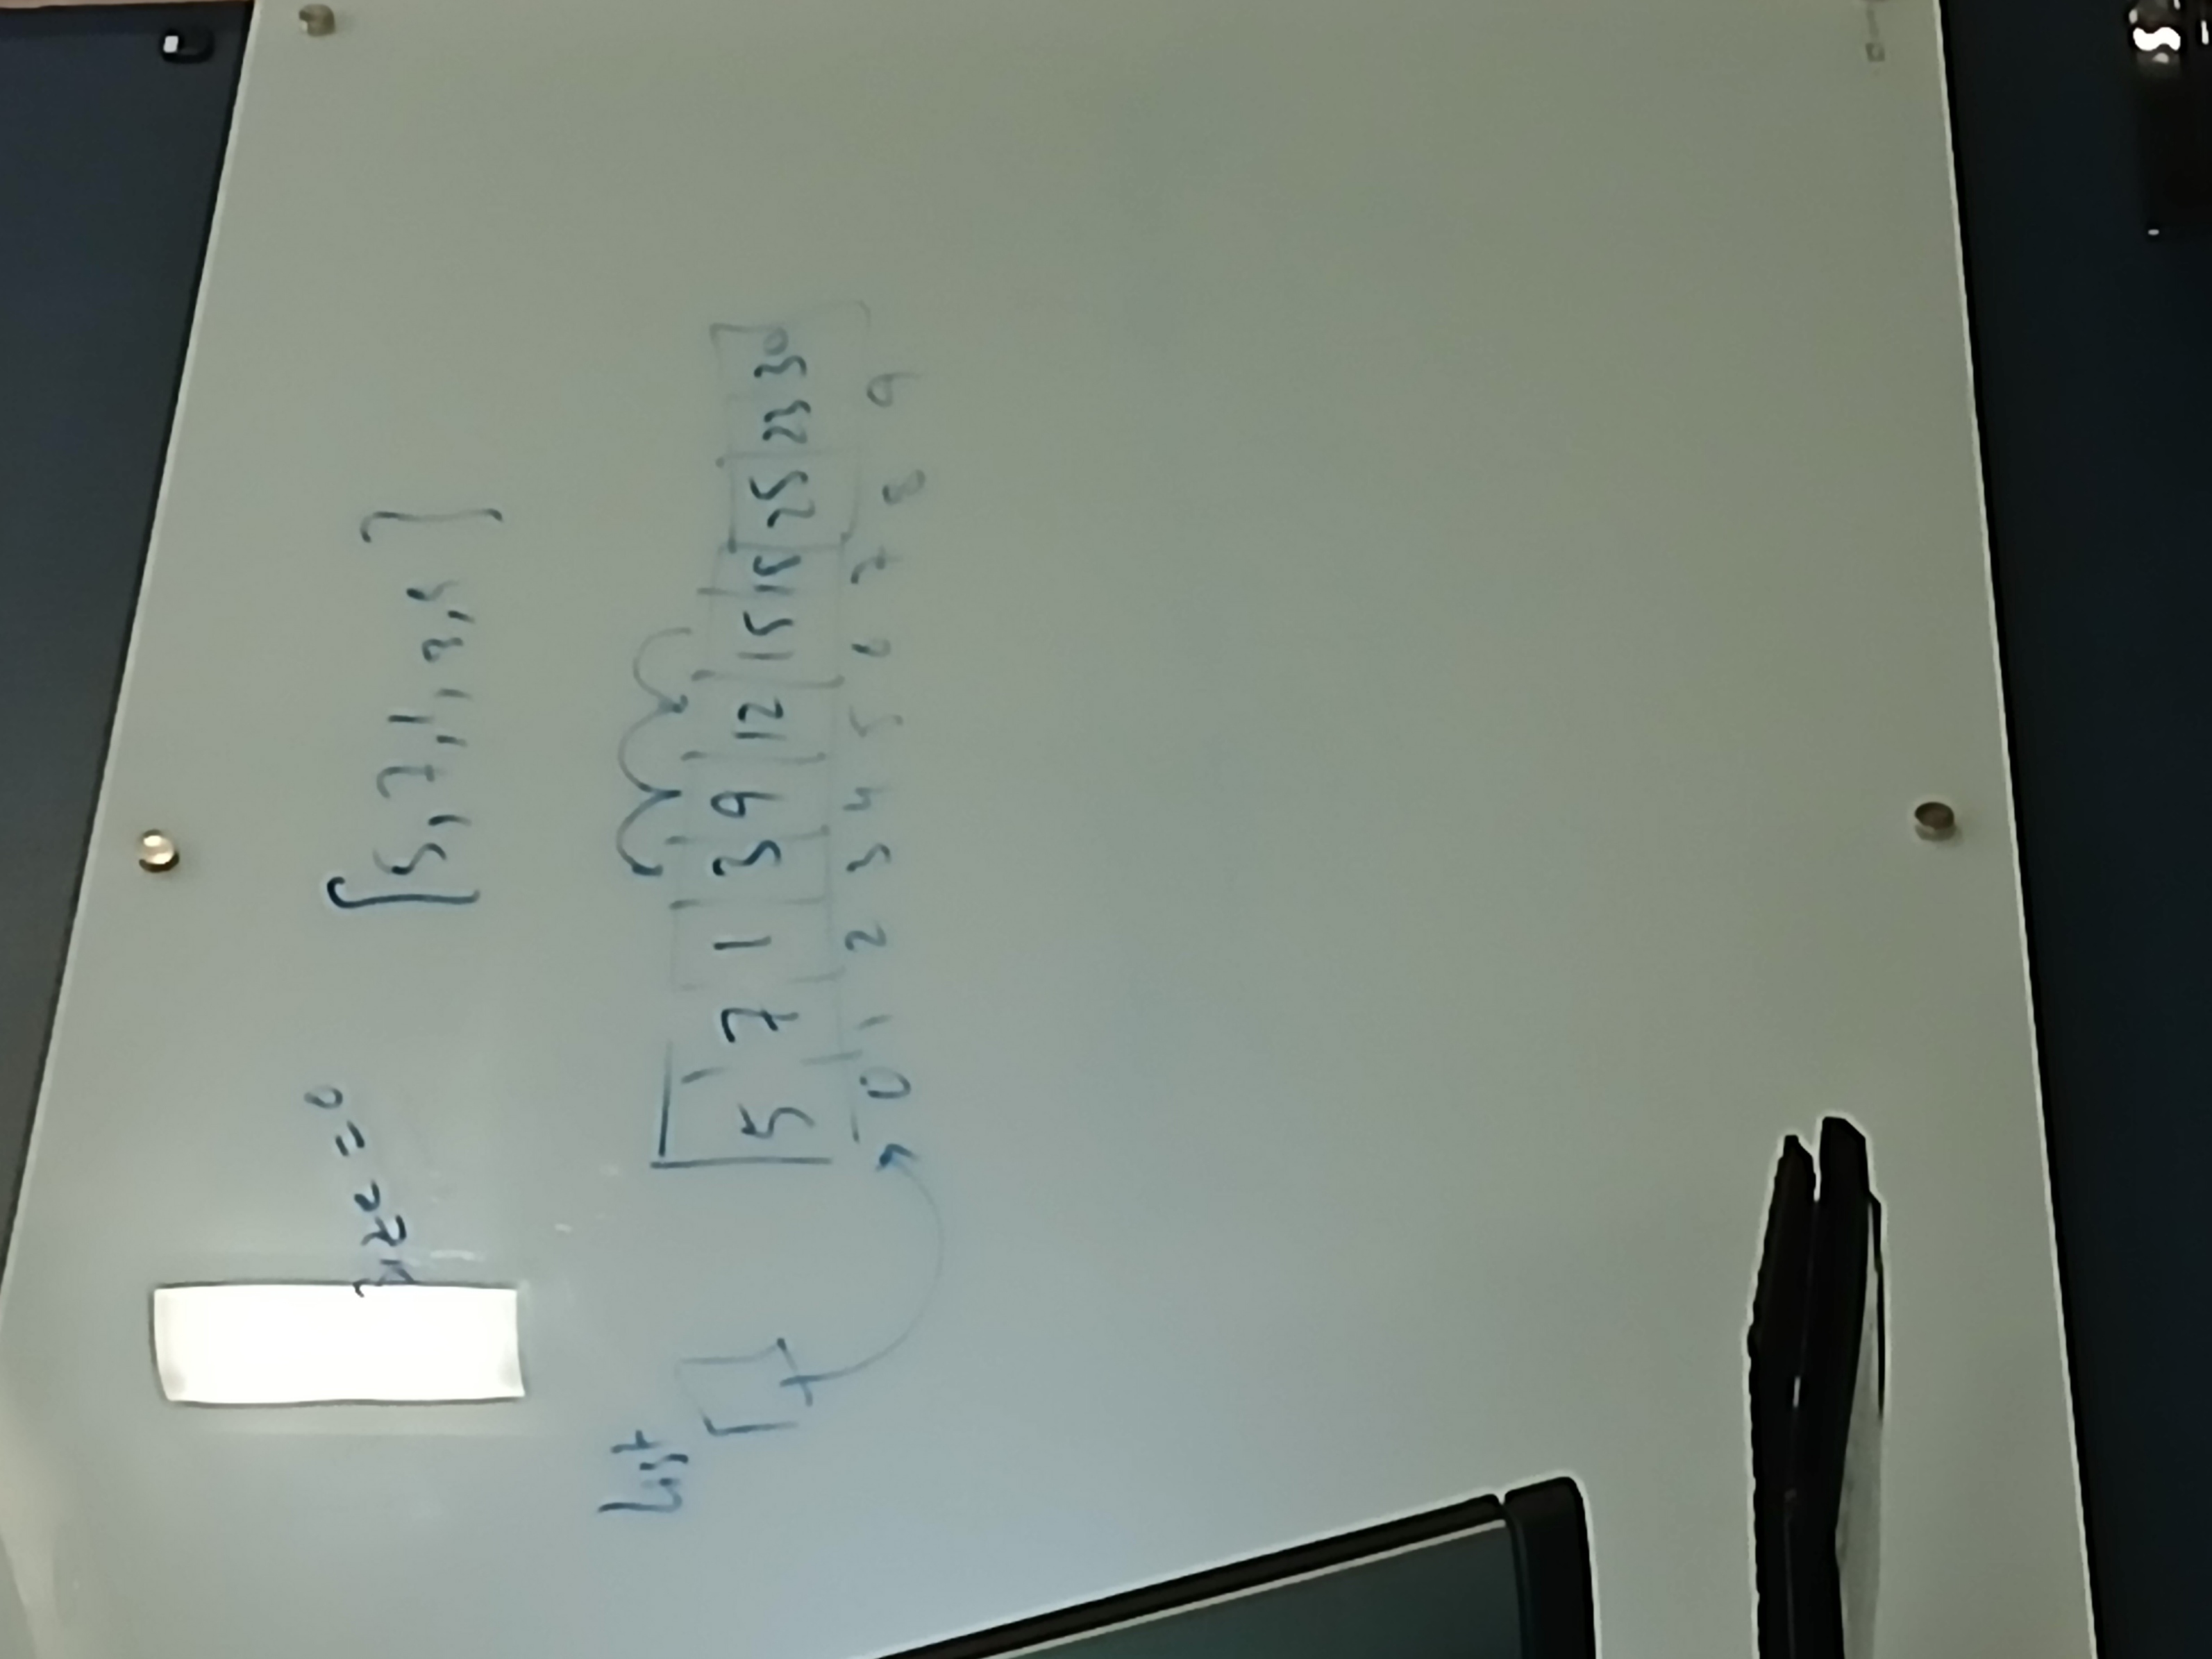 size = 0
[5, 7, 1, 3, 5 ]
List
5 7 1 3 9 12 15 18 25 23 30
0 1 2 3 4 5 6 7 8 9